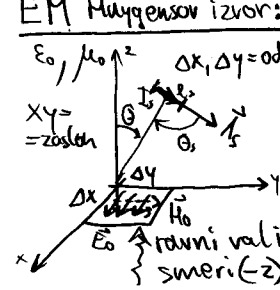 EM Huygensov izvor:
ε₀, μ₀
z
Δx, Δy = od
XY =
= zaslon
Θ
Θs
Δy
Δx
y
H₀
E₀
x
ravni val i
smeri (-z)